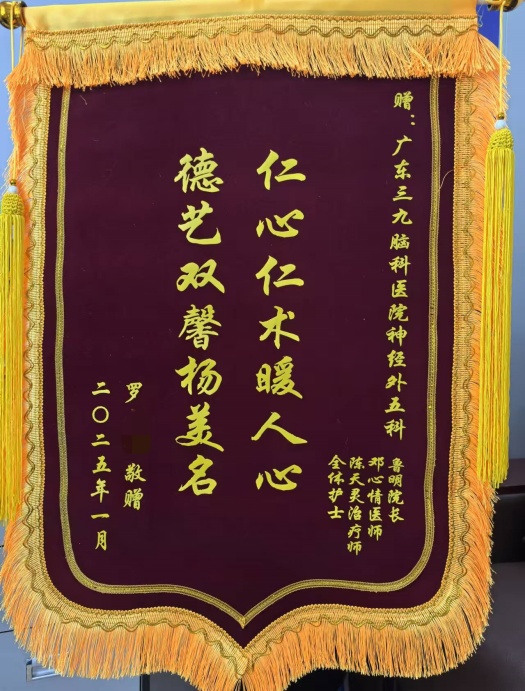 赠：广东三九脑科医院神经外五科
鲁明院长
邓心情医师
陈天灵治疗师
全体护士
仁心仁术暖人心
德艺双馨杨美名
罗 敬赠
二〇二五年一月